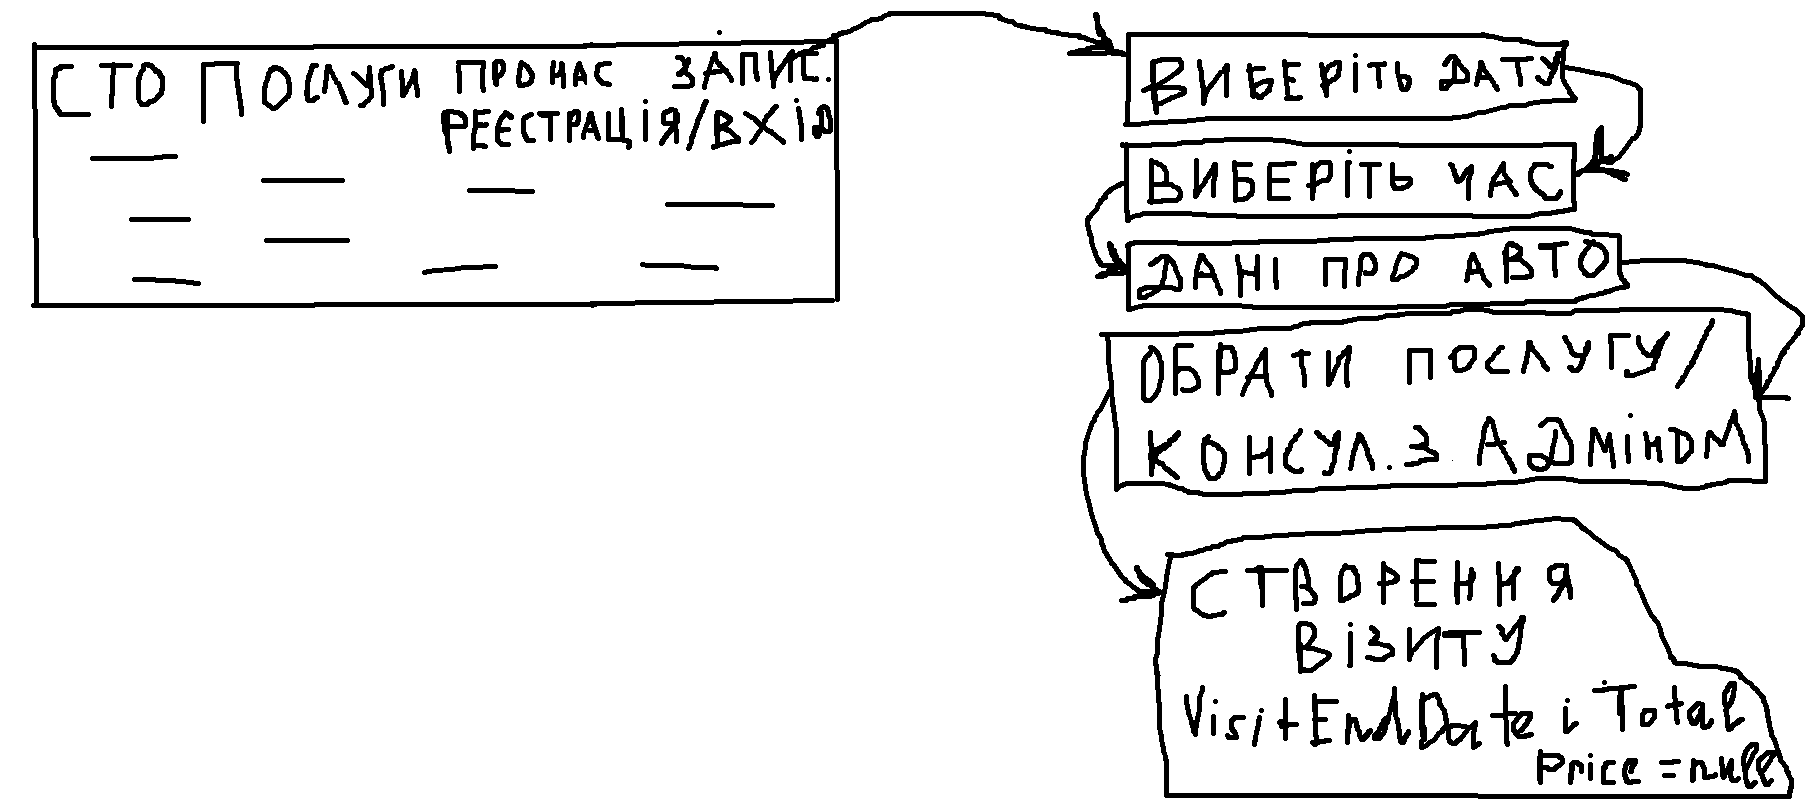 СТО ПОСЛУГИ ПРО НАС ЗАПИС.
РЕЄСТРАЦІЯ/ВХІД
ВИБЕРІТЬ ДАТУ
ВИБЕРІТЬ ЧАС
ДАНІ ПРО АВТО
ОБРАТИ ПОСЛУГУ/
КОНСУЛ. З АДМІНОМ
СТВОРЕННЯ
ВІЗИТУ
VisitEndDate і Total
Price = null